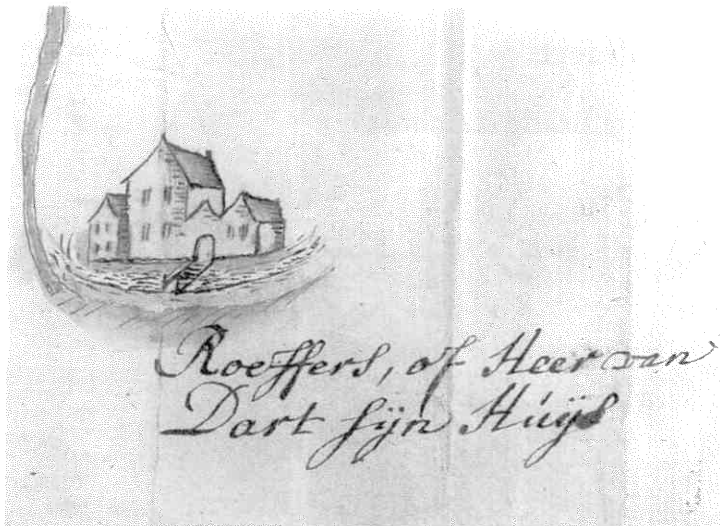 Roeffers, of Heer van
Dart sÿn Húÿs